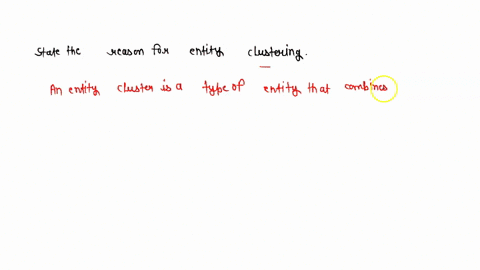 State the reason for entity clustering.
An entity cluster is a type of entity that combines